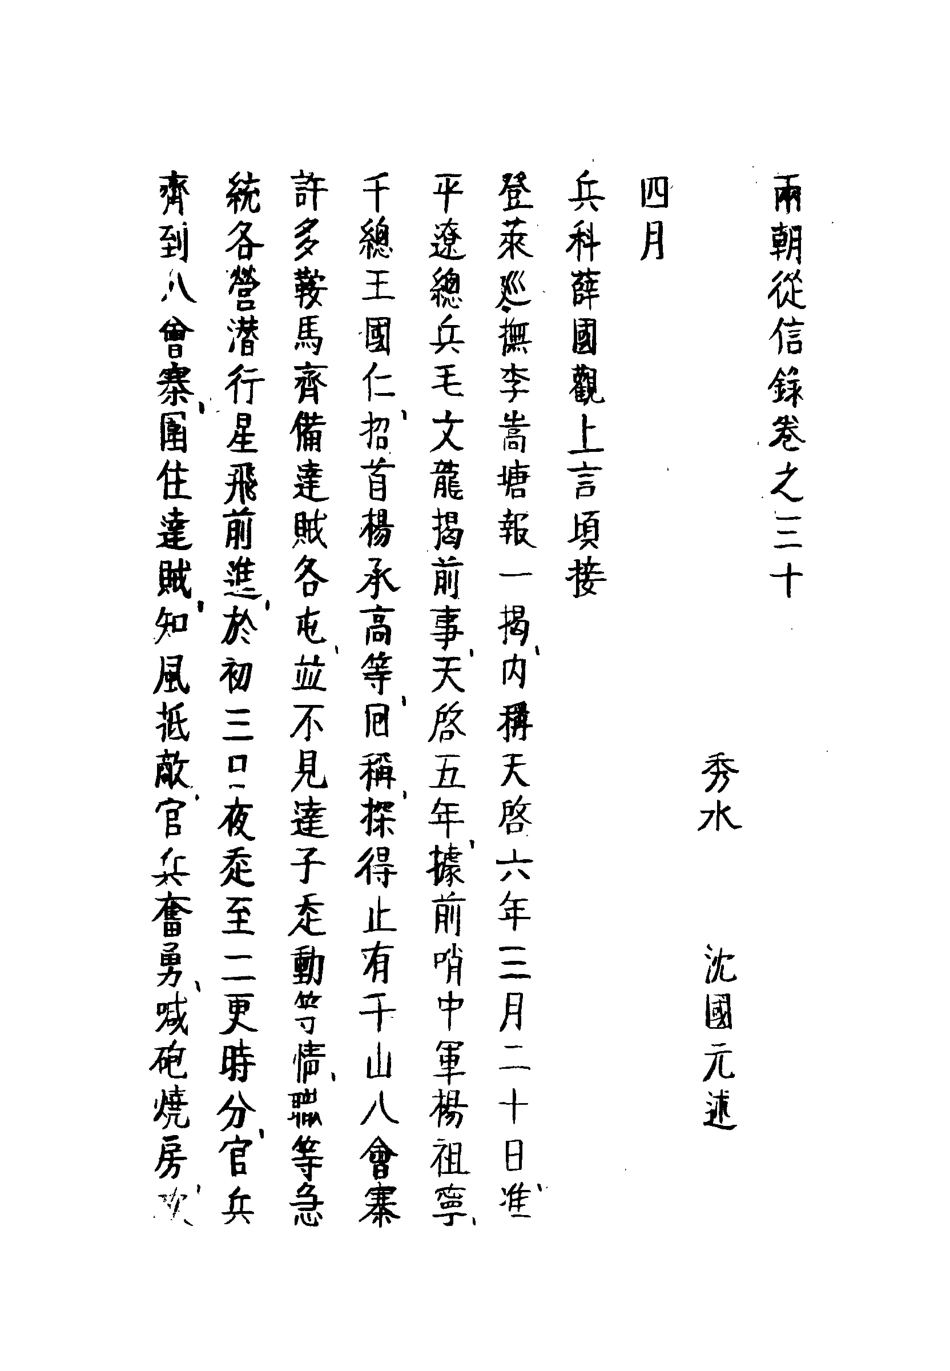 兩朝從信錄卷之三十
秀水 沈國元述
四月
兵科薛國觀上言頃接
登萊巡撫李嵩塘報一揭内稱天啓六年三月二十日准
平遼總兵毛文龍揭前事天啓五年據前哨中軍楊祖寧
千總王國仁招首楊承高等囘稱探得止有千山八會寨
許多鞍馬齊備達賊各屯並不見達子走動等情職等急
統各營潛行星飛前進於初三日夜走至二更時分官兵
齊到八會寨圍住達賊知風抵敵官兵奮勇喊砲燒房